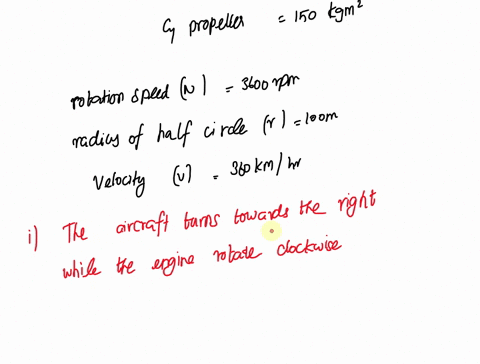 of propeller = 150 kgm²
rotation speed (N) = 3600 rpm
radius of half circle (r) = 100m
Velocity (v) = 360 km/hr
i) The aircraft turns towards the right
while the engine rotate clockwise